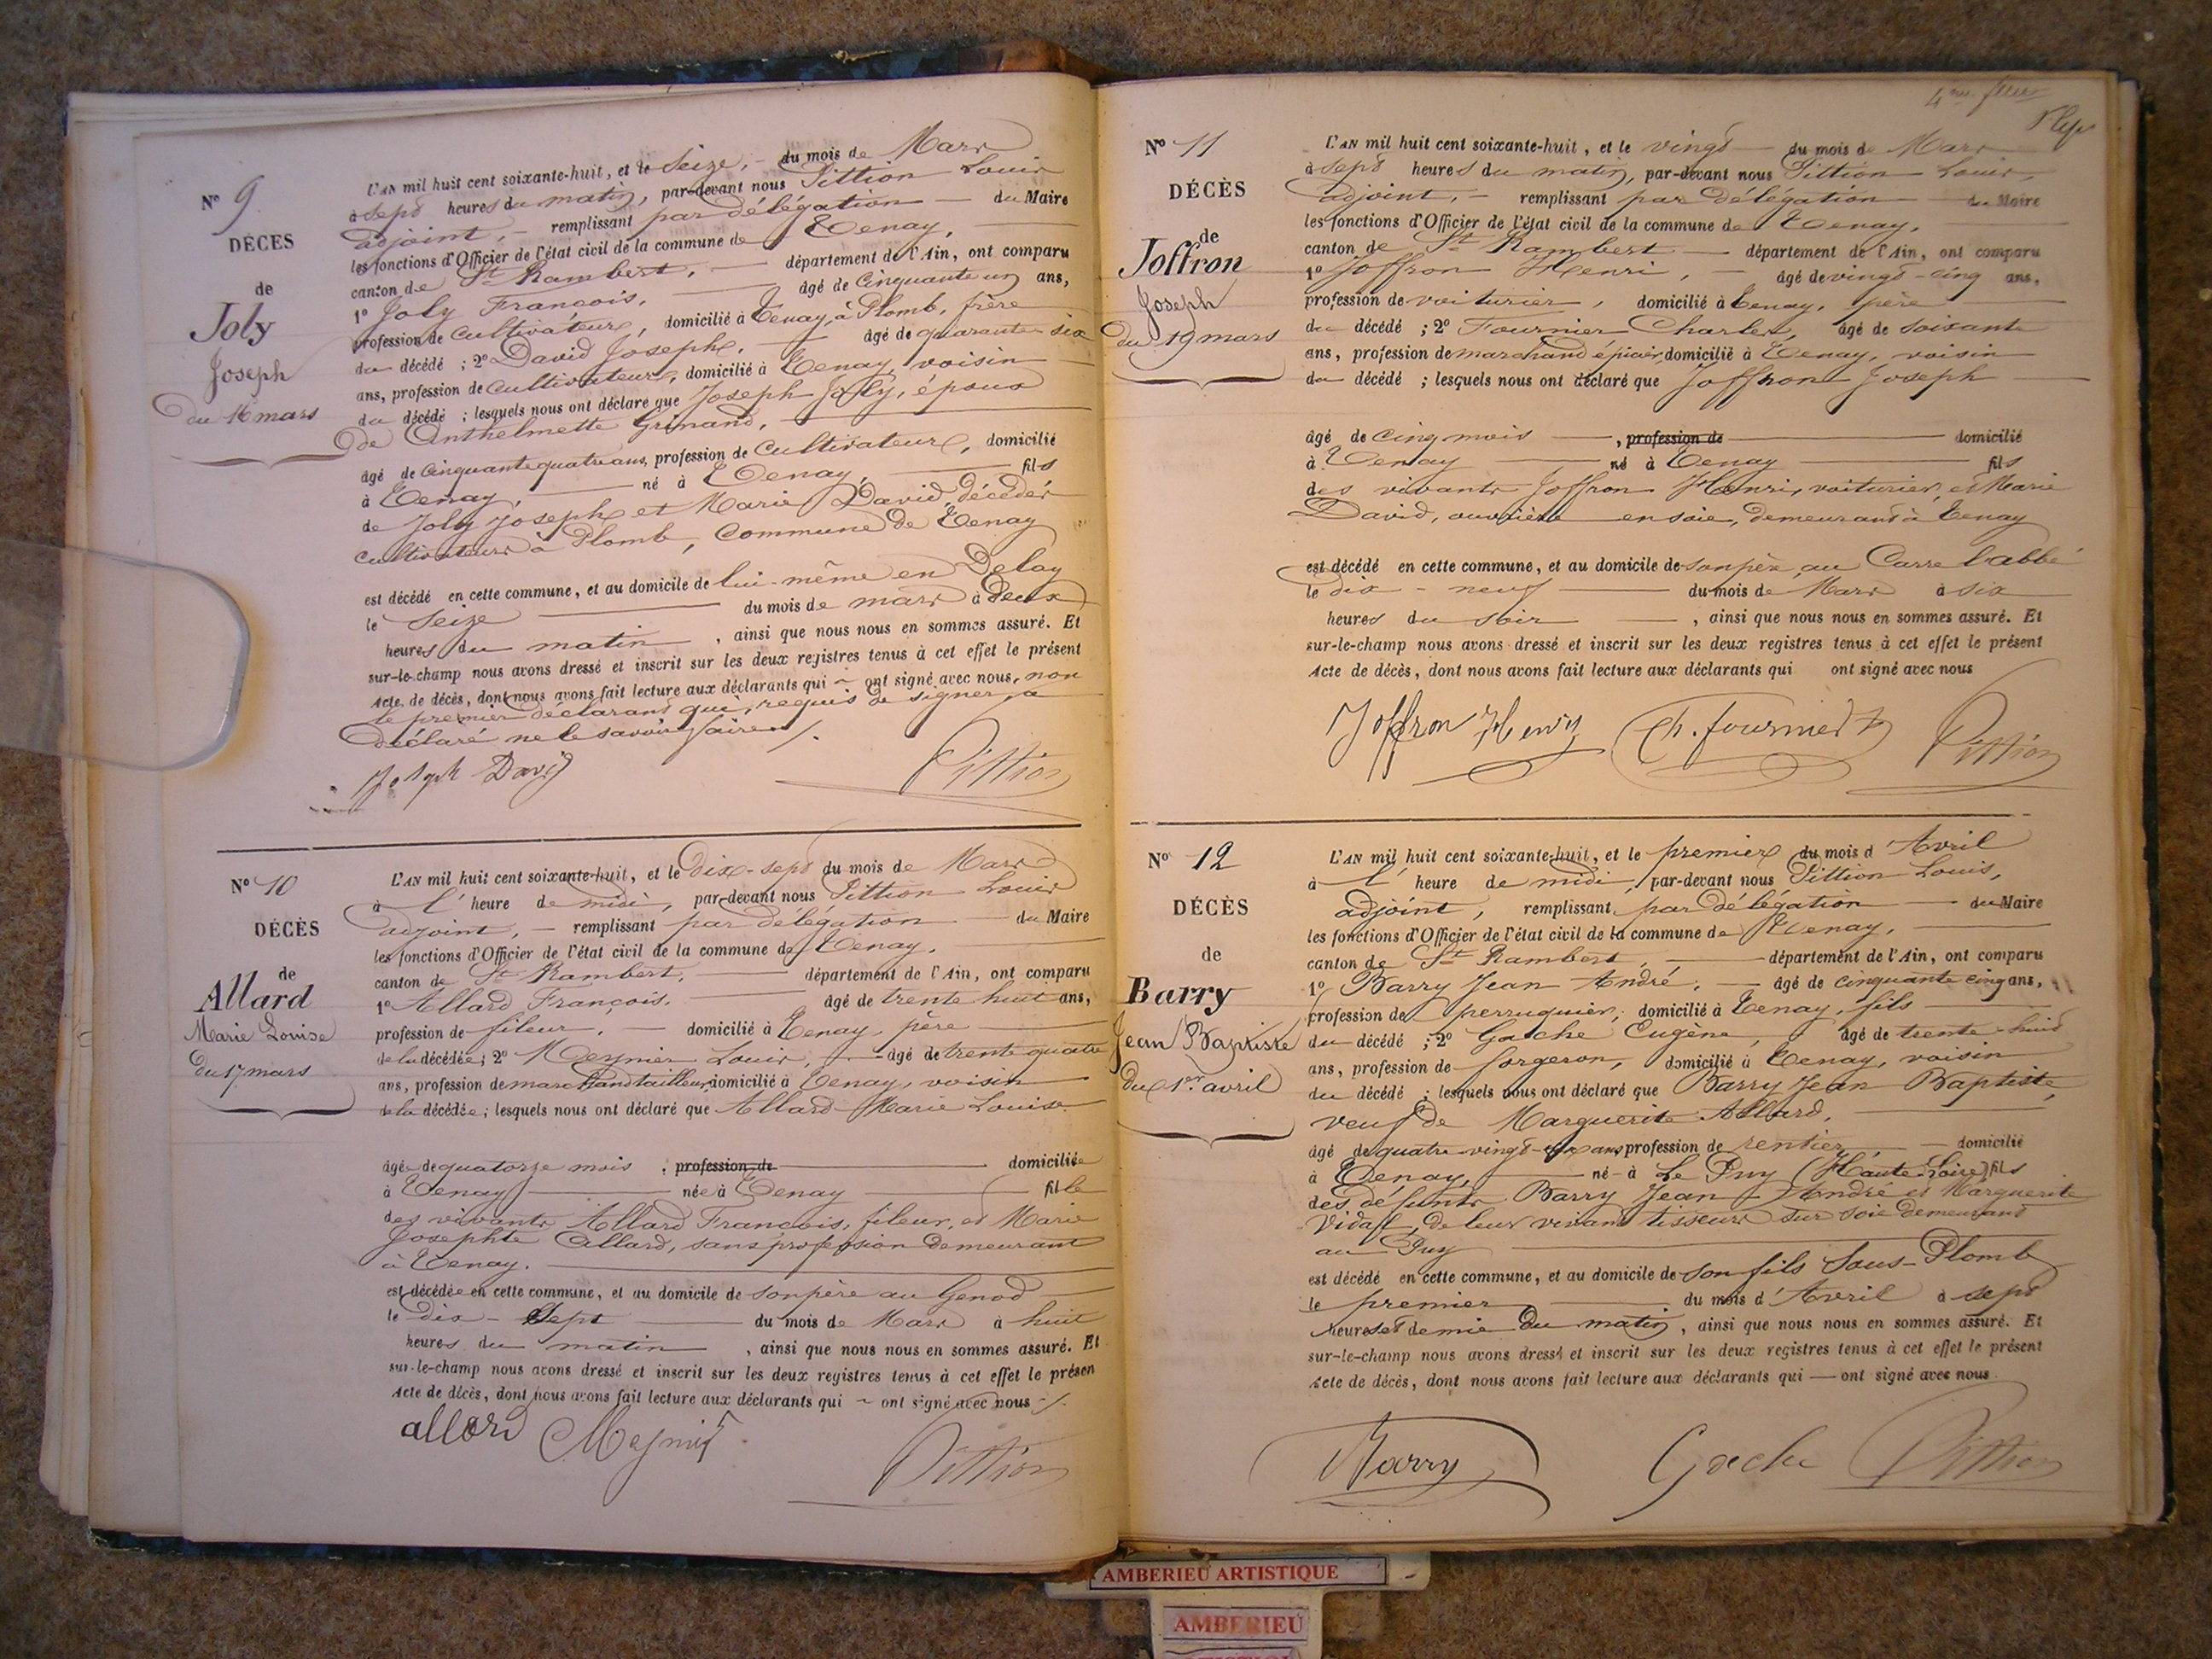 Nº 9
DÉCÈS
de
Joly
Joseph
du 16 mars
L'AN mil huit cent soixante-huit, et le Seize, du mois de Mars
à sept heures du matin, par-devant nous Pittion Louis
adjoint, remplissant par délégation du Maire
les fonctions d'Officier de l'état civil de la commune de Tenay,
canton de St Rambert, département de l'Ain, ont comparu
1º Joly François, âgé de Cinquante un ans,
profession de cultivateur, domicilié à Tenay, à Plomb, frère
du décédé ; 2º David Joseph, âgé de quarante six
ans, profession de cultivateur, domicilié à Tenay, voisin
du décédé ; lesquels nous ont déclaré que Joseph Joly, époux
de Anthelmette Grinand,
âgé de Cinquante quatre ans, profession de cultivateur, domicilié
à Tenay, né à Tenay, fils
de Joly Joseph et Marie David, décédés
cultivateurs à Plomb, Commune de Tenay
est décédé en cette commune, et au domicile de lui-même en Delay
le Seize du mois de mars à deux
heures du matin, ainsi que nous nous en sommes assuré. Et
sur-le-champ nous avons dressé et inscrit sur les deux registres tenus à cet effet le présent
Acte de décès, dont nous avons fait lecture aux déclarants qui ont signé avec nous, non
le premier déclarant qui, requis de signer, a
déclaré ne le savoir faire.
Joseph David Pittion
Nº 10
DÉCÈS
de
Allard
Marie Louise
du 17 mars
L'AN mil huit cent soixante-huit, et le Dix-sept du mois de Mars
à l'heure de midi, par-devant nous Pittion Louis
adjoint, remplissant par délégation du Maire
les fonctions d'Officier de l'état civil de la commune de Tenay,
canton de St Rambert, département de l'Ain, ont comparu
1º Allard François, âgé de trente huit ans,
profession de fileur, domicilié à Tenay, père
de la décédée ; 2º Meynier Louis, âgé de trente quatre
ans, profession de marchand tailleur, domicilié à Tenay, voisin
de la décédée ; lesquels nous ont déclaré que Allard Marie Louise
âgée de quatorze mois, profession de domiciliée
à Tenay née à Tenay fille
des vivants Allard François, fileur, et Marie
Josephte Allard, sans profession demeurant
à Tenay.
est décédée en cette commune, et au domicile de son père au Genod
le dix-sept du mois de Mars à huit
heures du matin, ainsi que nous nous en sommes assuré. Et
sur-le-champ nous avons dressé et inscrit sur les deux registres tenus à cet effet le présen
Acte de décès, dont nous avons fait lecture aux déclarants qui ont signé avec nous
allard Meynier Pittion
4me feuil
Nº 11
DÉCÈS
de
Joffron
Joseph
du 19 mars
L'AN mil huit cent soixante-huit, et le vingt du mois de Mars
à sept heures du matin, par-devant nous Pittion Louis,
adjoint, remplissant par délégation du Maire
les fonctions d'Officier de l'état civil de la commune de Tenay,
canton de St Rambert département de l'Ain, ont comparu
1º Joffron Henri, âgé de vingt-cinq ans,
profession de voiturier, domicilié à Tenay, père
du décédé ; 2º Fournier Charles, âgé de soixante
ans, profession de marchand épicier, domicilié à Tenay, voisin
du décédé ; lesquels nous ont déclaré que Joffron Joseph
âgé de cinq mois, profession de domicilié
à Tenay né à Tenay fils
des vivants Joffron Henri, voiturier, et Marie
David, ouvrière en soie, demeurant à Tenay
est décédé en cette commune, et au domicile de son père au Carre l'abbé
le dix-neuf du mois de Mars à six
heures du soir, ainsi que nous nous en sommes assuré. Et
sur-le-champ nous avons dressé et inscrit sur les deux registres tenus à cet effet le présent
Acte de décès, dont nous avons fait lecture aux déclarants qui ont signé avec nous
Joffron Henry Ch. fournier Pittion
Nº 12
DÉCÈS
de
Barry
Jean Baptiste
du 1er avril
L'AN mil huit cent soixante-huit, et le premier du mois d'Avril
à l'heure de midi, par-devant nous Pittion Louis,
adjoint, remplissant par délégation du Maire
les fonctions d'Officier de l'état civil de la commune de Tenay,
canton de St Rambert, département de l'Ain, ont comparu
1º Barry Jean André, âgé de cinquante cinq ans,
profession de perruquier, domicilié à Tenay, fils
du décédé ; 2º Gache Eugène, âgé de trente-huit
ans, profession de forgeron, domicilié à Tenay, voisin
du décédé ; lesquels nous ont déclaré que Barry Jean Baptiste,
veuf de Marguerite Allard,
âgé de quatre-vingt ans profession de rentier domicilié
à Tenay, né à Le Puy (Haute-Loire) fils
des défunts Barry Jean André et Marguerite
Vidal, de leur vivant tisseurs sur soie demeurant
au Puy
est décédé en cette commune, et au domicile de son fils Sous-Plomb
le premier du mois d'Avril à sept
heures et demie du matin, ainsi que nous nous en sommes assuré. Et
sur-le-champ nous avons dressé et inscrit sur les deux registres tenus à cet effet le présent
Acte de décès, dont nous avons fait lecture aux déclarants qui ont signé avec nous
Barry Gache Pittion
AMBERIEU ARTISTIQUE
AMBERIEU